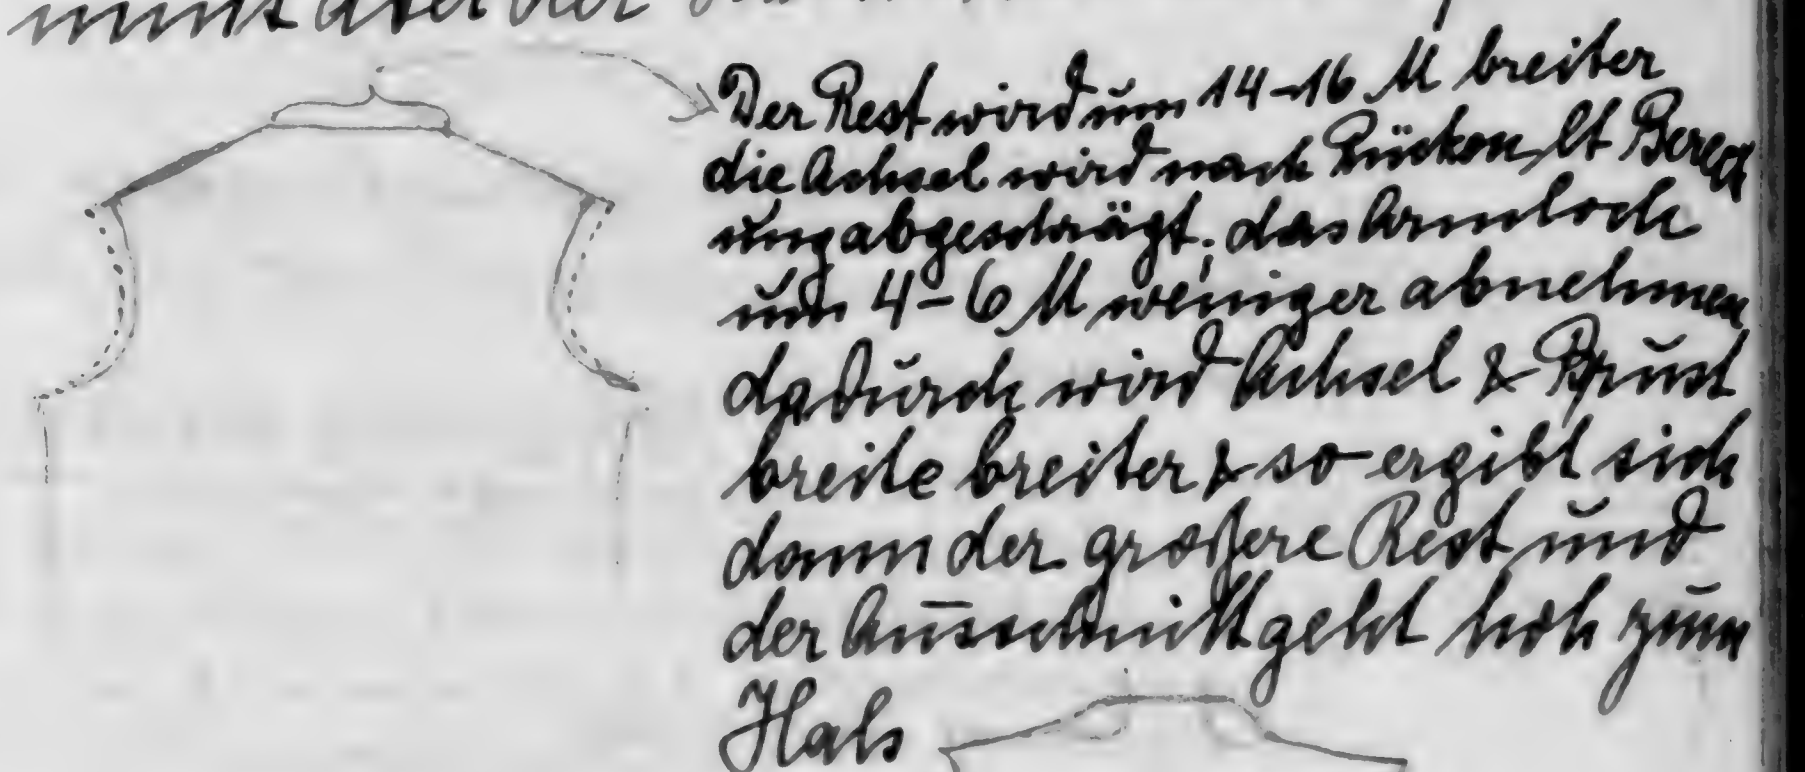 nimt aber der
Der Rest wird um 14-16 M breiter
die Achsel wird nach Rücken lt Berech
ung abgeschrägt; das Armloch
um 4-6 M weniger abnehmen
dadurch wird Achsel & Brust
breite breiter & so ergibt sich
dann der größere Rest und
der Ausschnitt geht hoh zum
Hals